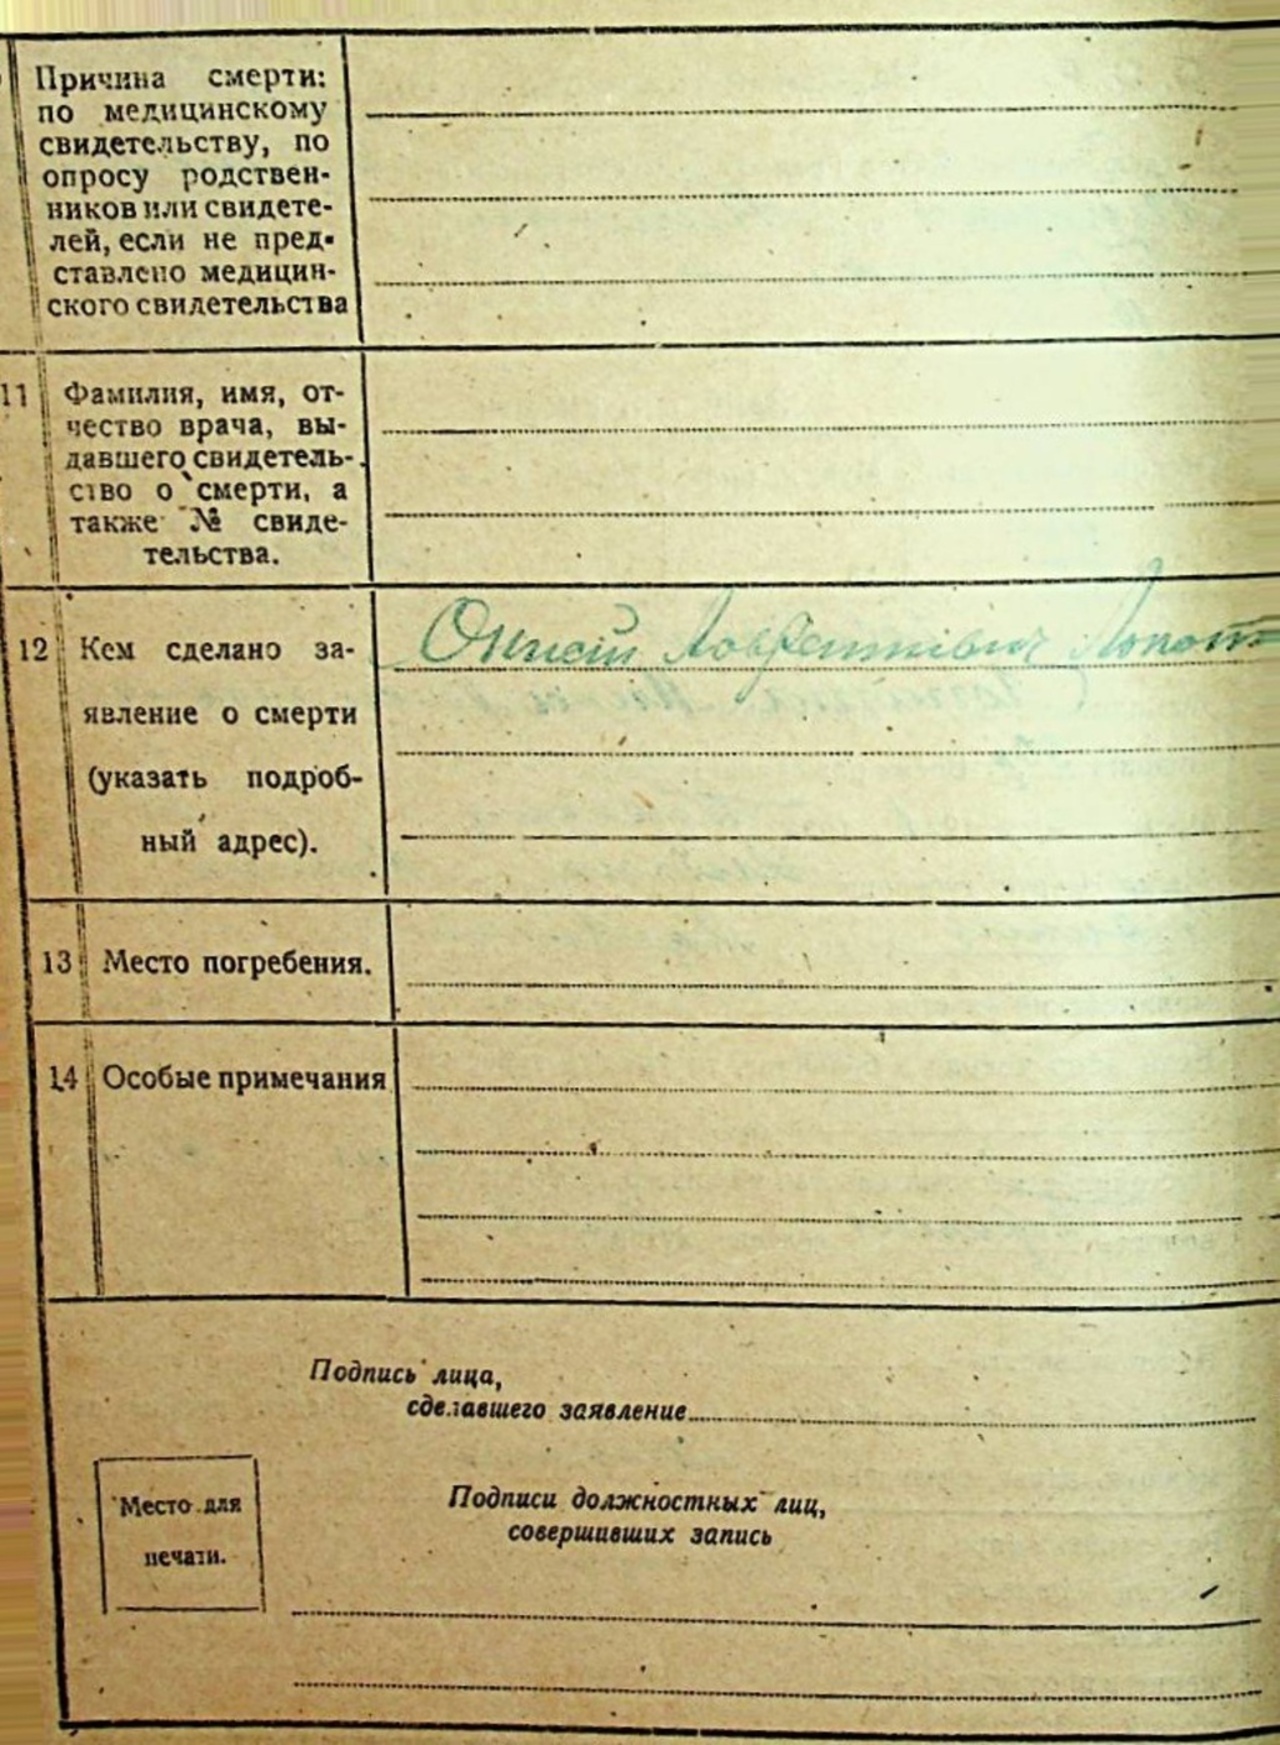 Причина смерти:
по медицинскому
свидетельству, по
опросу родствен-
ников или свидете-
лей, если не пред-
ставлено медицин-
ского свидетельства
11 Фамилия, имя, от-
чество врача, вы-
давшего свидетель-
ство о смерти, а
также № свиде-
тельства.
12 Кем сделано за-
явление о смерти
(указать подроб-
ный адрес).
13 Место погребения.
14 Особые примечания
Подпись лица,
сделавшего заявление
Место для
печати.
Подписи должностных лиц,
совершивших запись